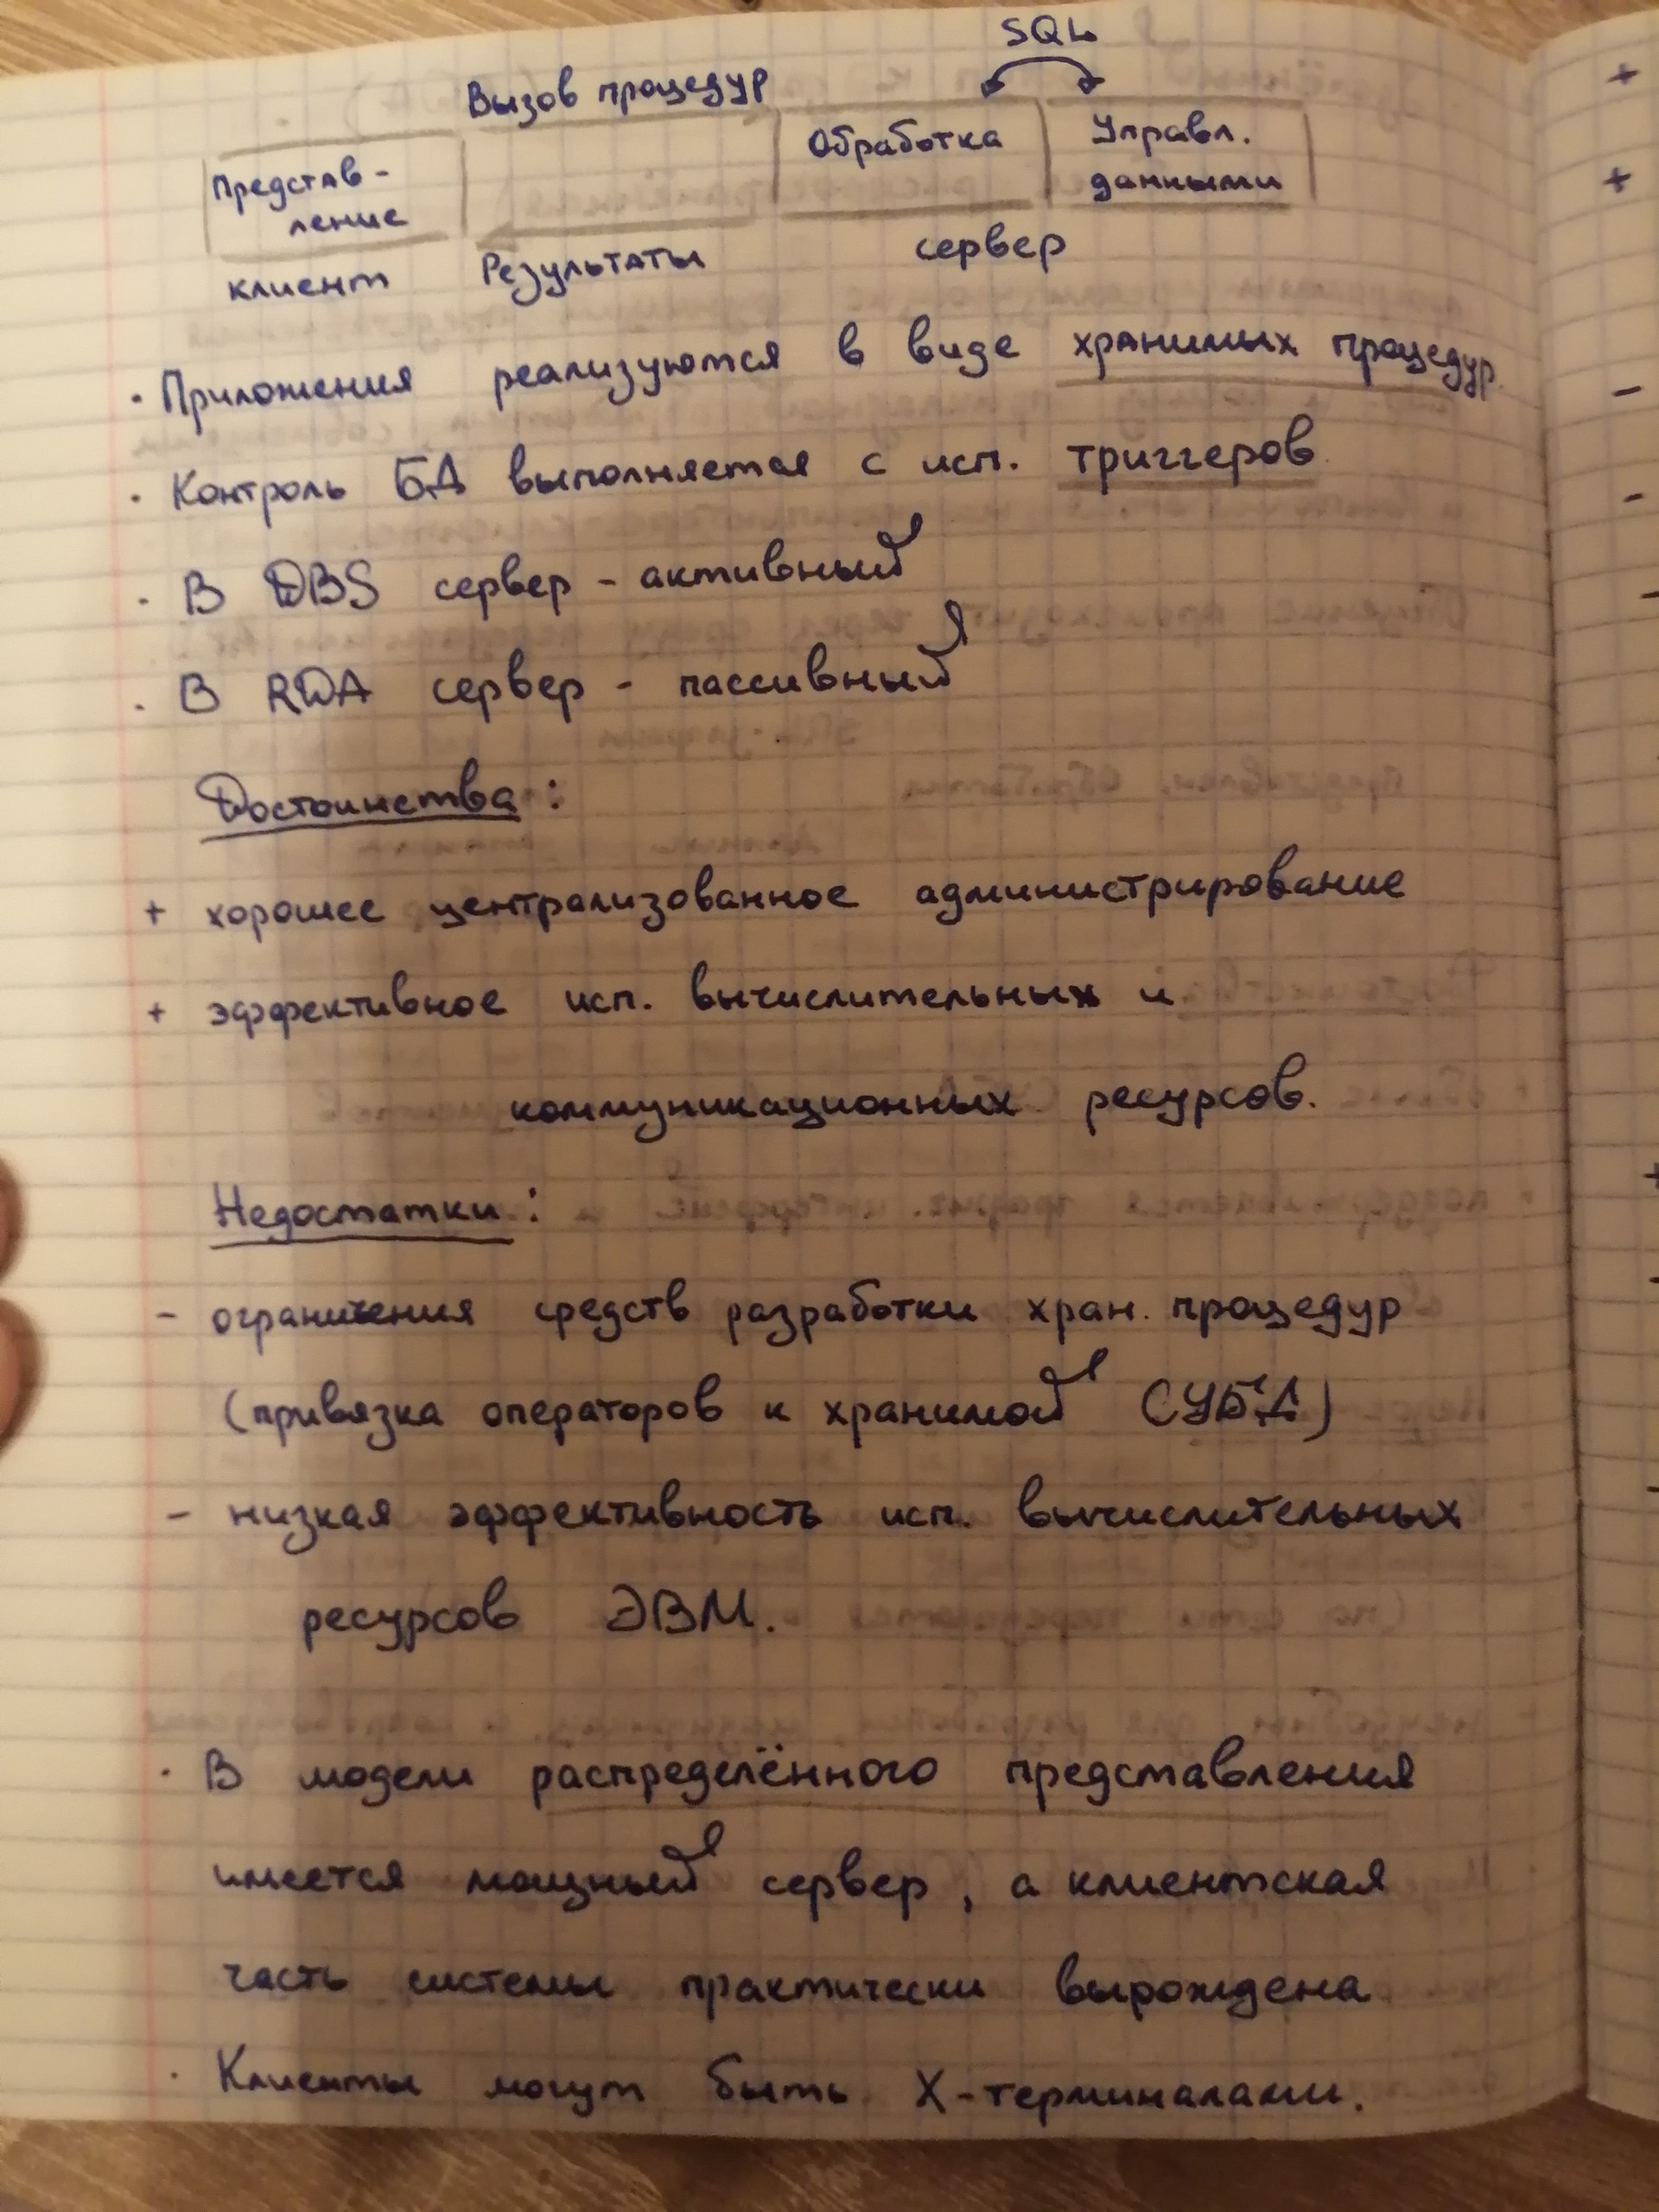 SQL
Вызов процедур
Представ-
ление
Обработка
Управл.
данными
клиент
Результаты
сервер
· Приложения реализуются в виде хранимых процедур.
· Контроль БД выполняется с исп. триггеров.
· В DBS сервер - активный
· В RDA сервер - пассивный
Достоинства:
+ хорошее централизованное администрирование
+ эффективное исп. вычислительных и
коммуникационных ресурсов.
Недостатки:
- ограничения средств разработки хран. процедур
(привязка операторов к хранимой СУБД)
- низкая эффективность исп. вычислительных
ресурсов ЭВМ.
· В модели распределённого представления
имеется мощный сервер, а клиентская
часть системы практически вырождена
· Клиенты могут быть X-терминалами.